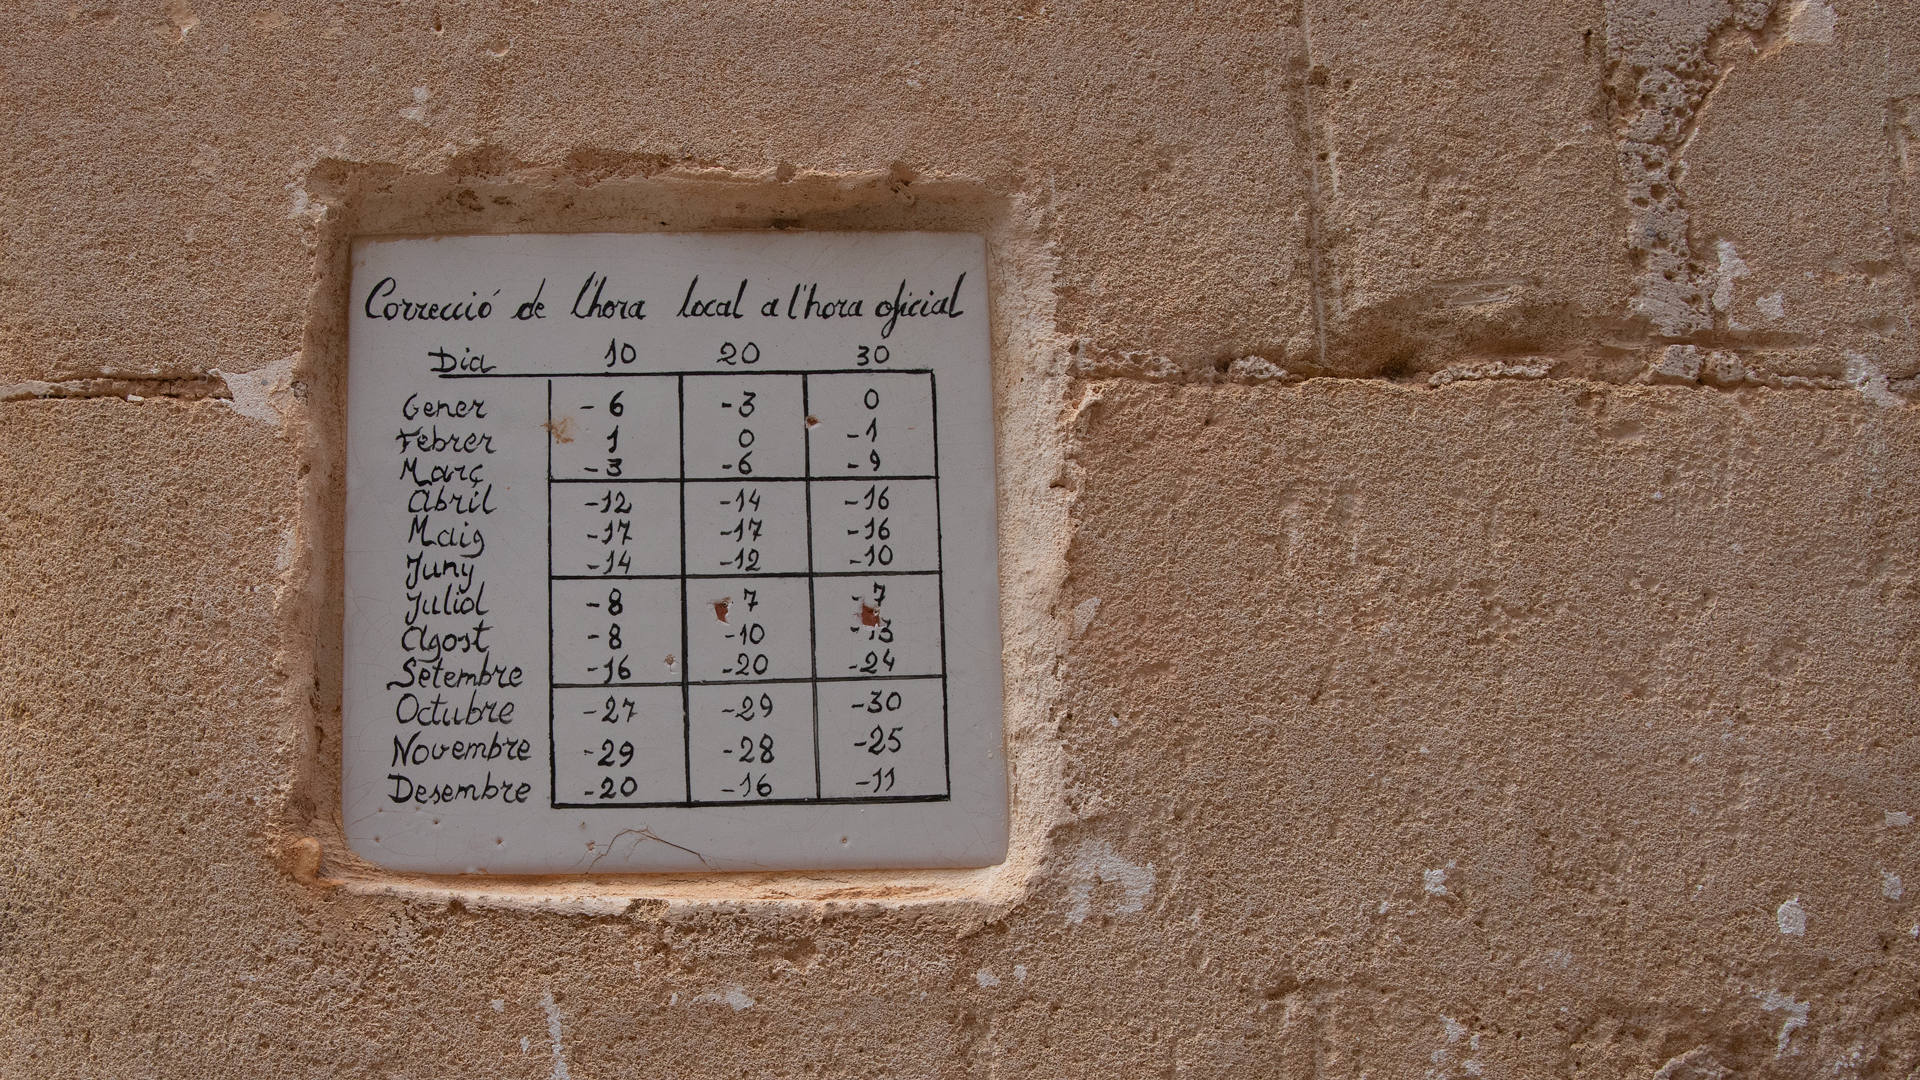 Correcció de l'hora local a l'hora oficial
Dia 10 20 30
Gener -6 -3 0
Febrer 1 0 -1
Març -3 -6 -9
Abril -12 -14 -16
Maig -17 -17 -16
Juny -14 -12 -10
Juliol -8 7 -7
Agost -8 -10 -13
Setembre -16 -20 -24
Octubre -27 -29 -30
Novembre -29 -28 -25
Desembre -20 -16 -11